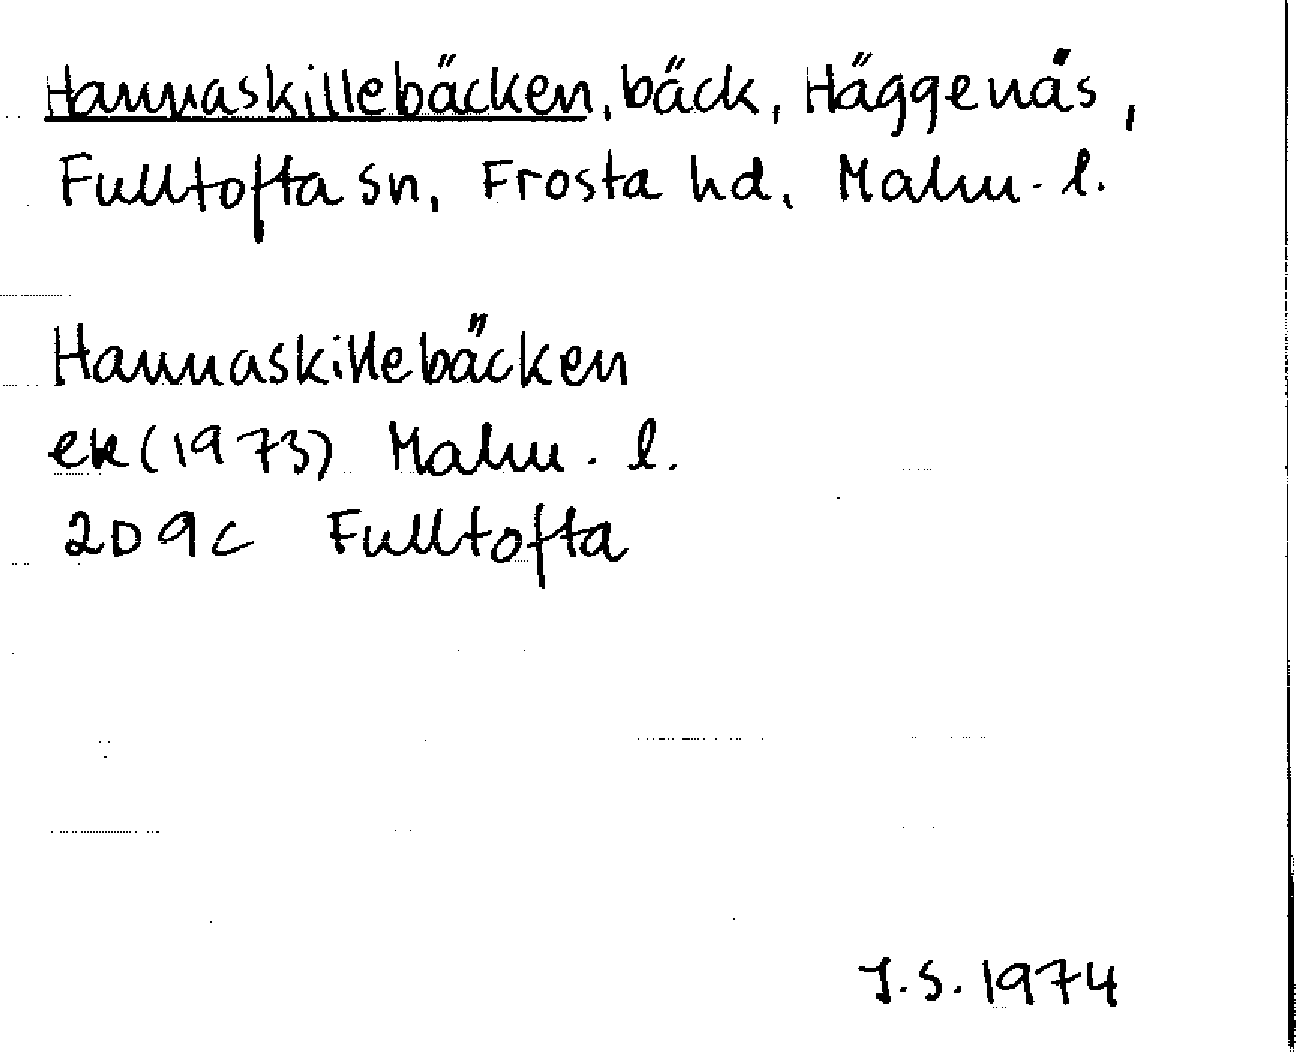 Hannaskillebäcken, bäck, Häggenäs,
Fulltofta sn, Frosta hd, Malm. l.
Hannaskillebäcken
ek (1973) Malm. l.
2D 9c Fulltofta
J.S. 1974